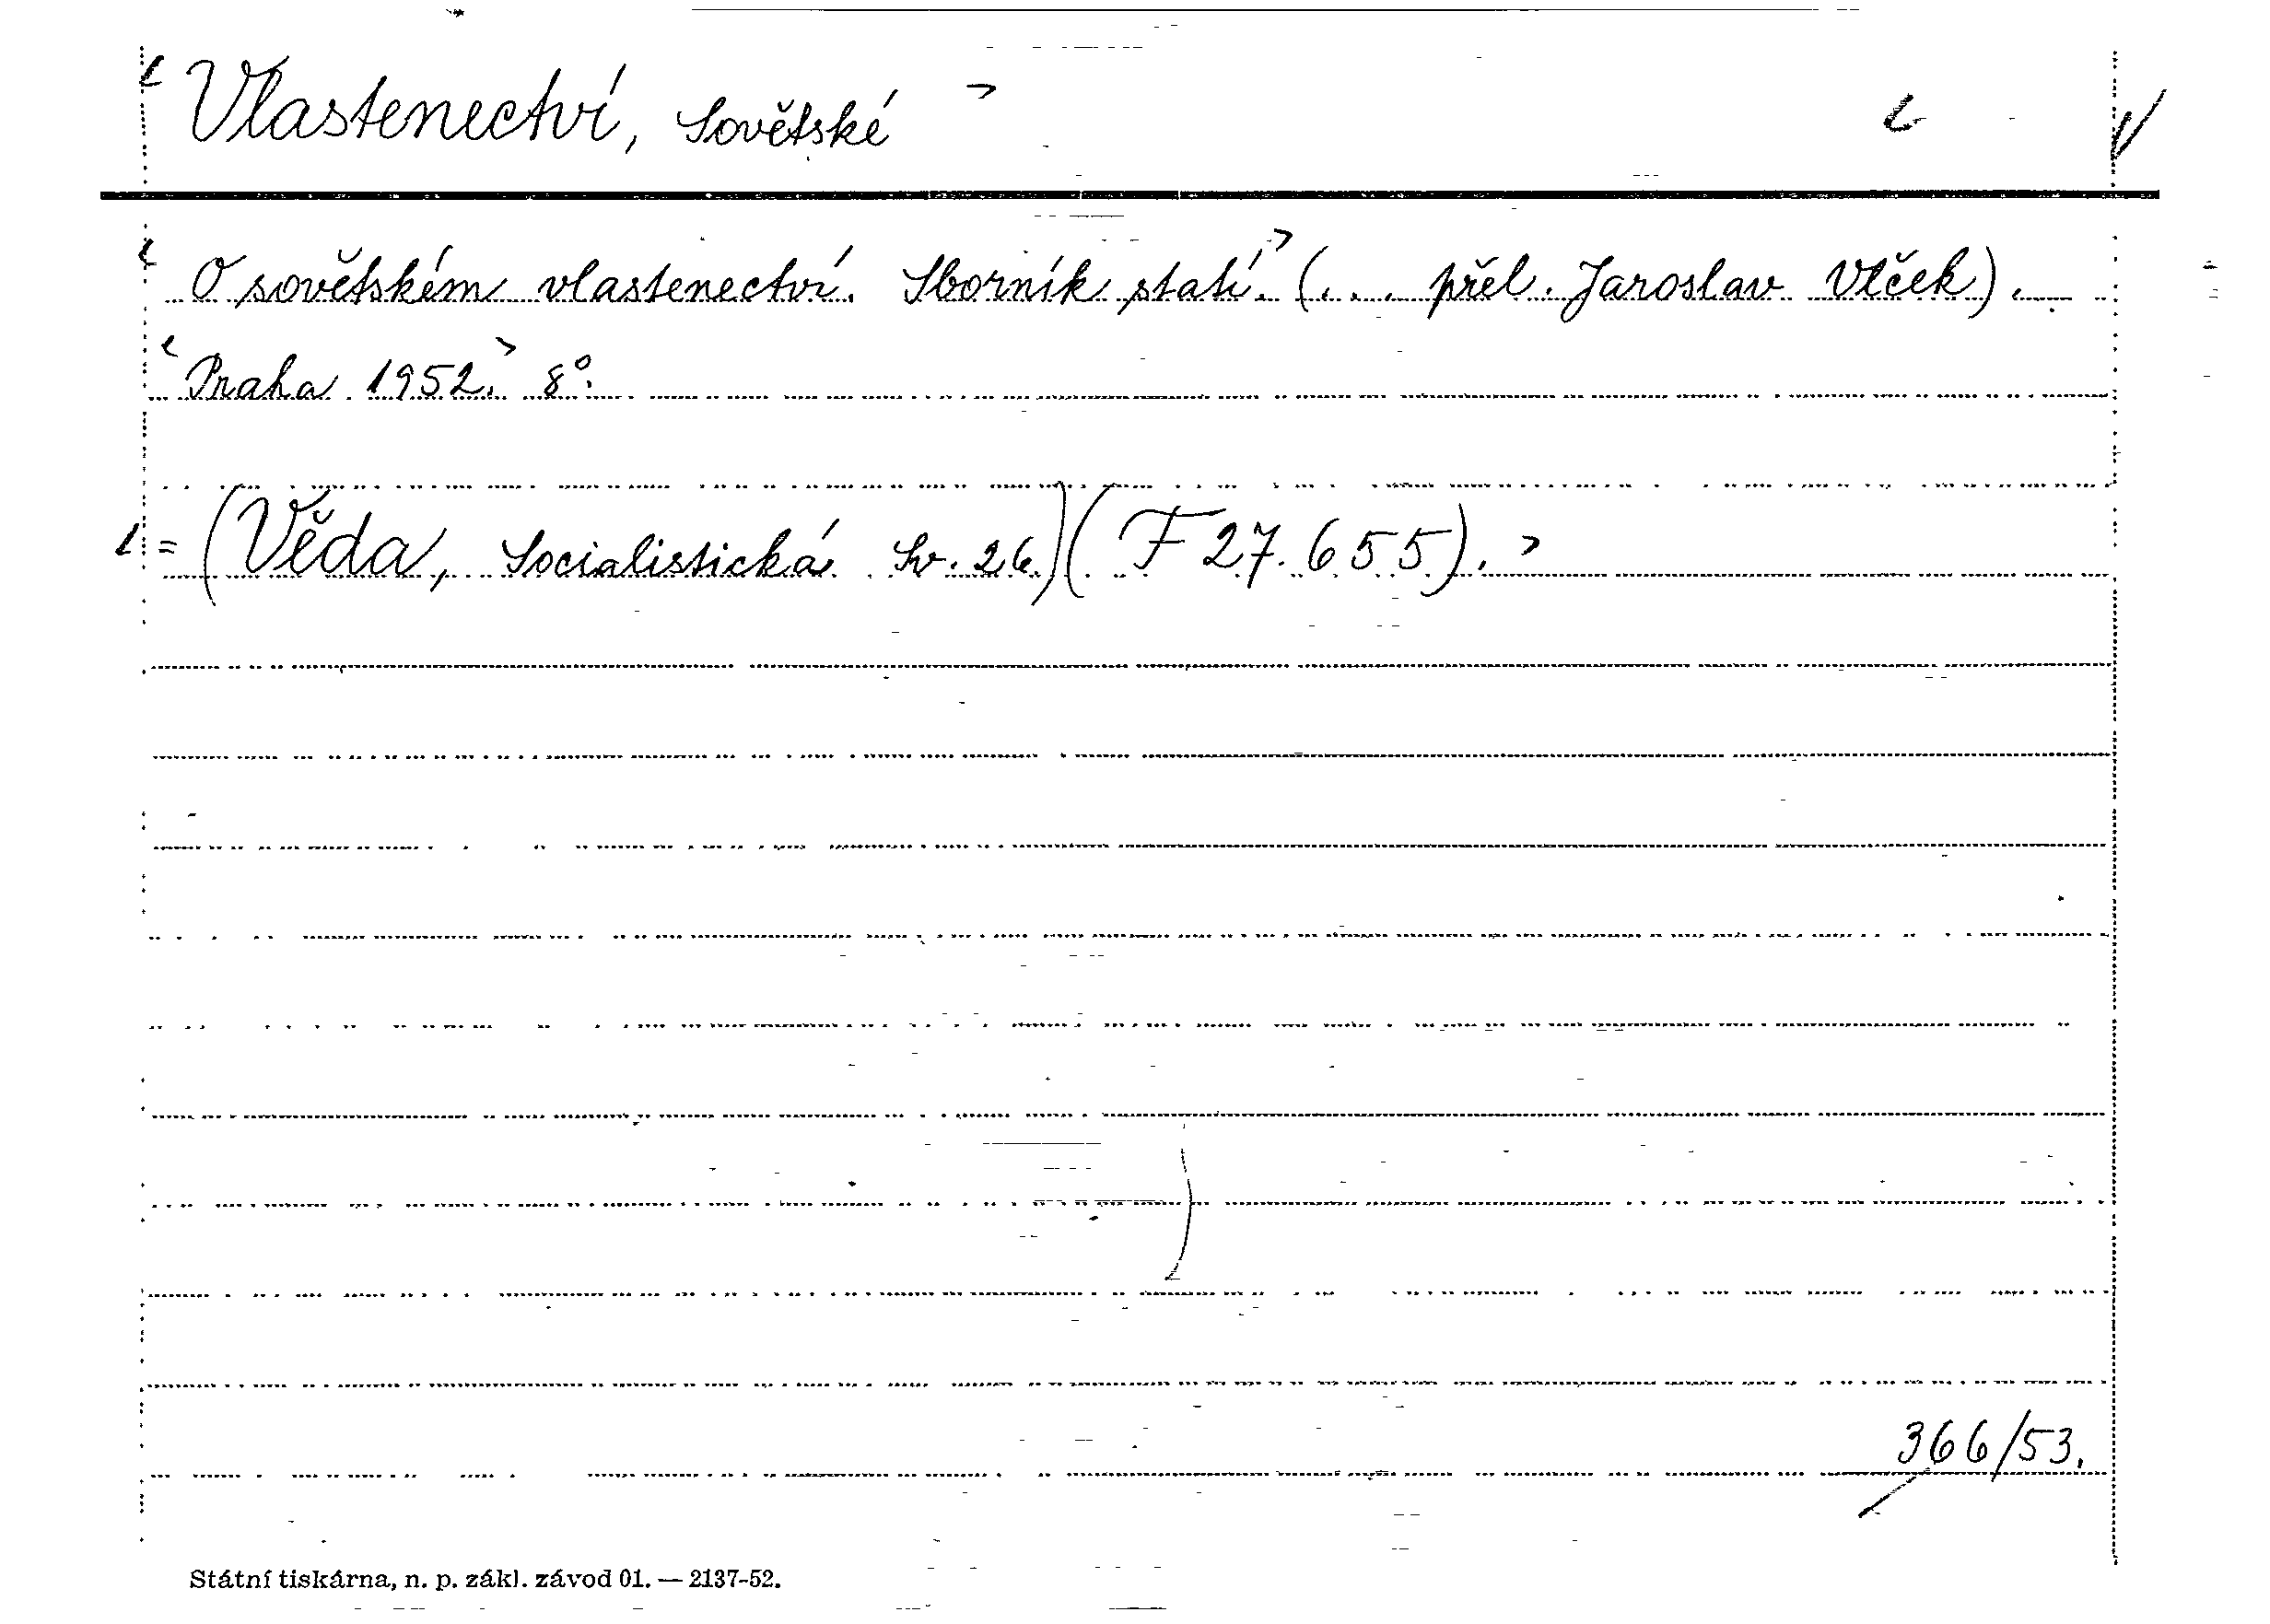 Vlastenectví, Sovětské
O sovětském vlastenectví. Sborník statí. (... přel. Jaroslav Vlček).
Praha 1952. 8°.
= (Věda, Socialistická Sv. 26.) (F 27.655).
366/53.
Státní tiskárna, n. p. zákl. závod 01. — 2137-52.